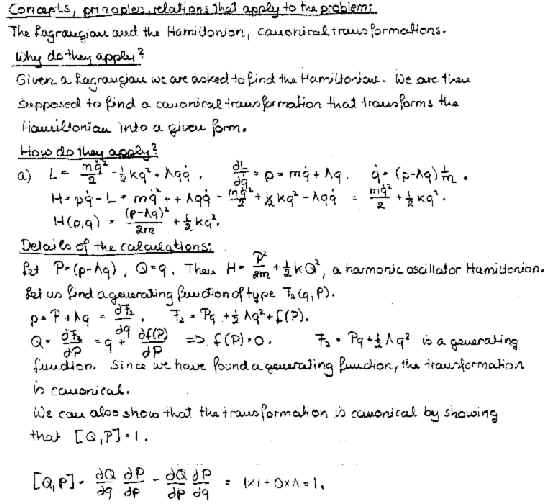 Concepts, principles, relations that apply to the problem:
The Lagrangian and the Hamiltonian, canonical transformations.
Why do they apply?
Given a Lagrangian we are asked to find the Hamiltonian. We are then
supposed to find a canonical transformation that transforms the
Hamiltonian into a given form.
How do they apply?
a) L = mq̇²/2 - ½kq² + Λqq̇ , ∂L/∂q̇ = p = mq̇ + Λq. q̇ = (p-Λq)1/m .
H = pq̇ - L = mq̇² + Λqq̇ - mq̇²/2 + ½kq² - Λqq̇ = mq̇²/2 + ½kq².
H(p,q) = (p-Λq)²/2m + ½kq².
Details of the calculations:
Let P = (p-Λq), Q = q. Then H = P²/2m + ½kQ², a harmonic oscillator Hamiltonian.
Let us find a generating function of type F₂(q,P).
p = P + Λq = ∂F₂/∂q , F₂ = Pq + ½Λq² + f(P).
Q = ∂F₂/∂P = q + ∂f(P)/∂P => f(P) = 0. F₂ = Pq + ½Λq² is a generating
function. Since we have found a generating function, the transformation
is canonical.
We can also show that the transformation is canonical by showing
that [Q,P] = 1.
[Q,P] = ∂Q/∂q ∂P/∂p - ∂Q/∂p ∂P/∂q = 1×1 - 0×Λ = 1.